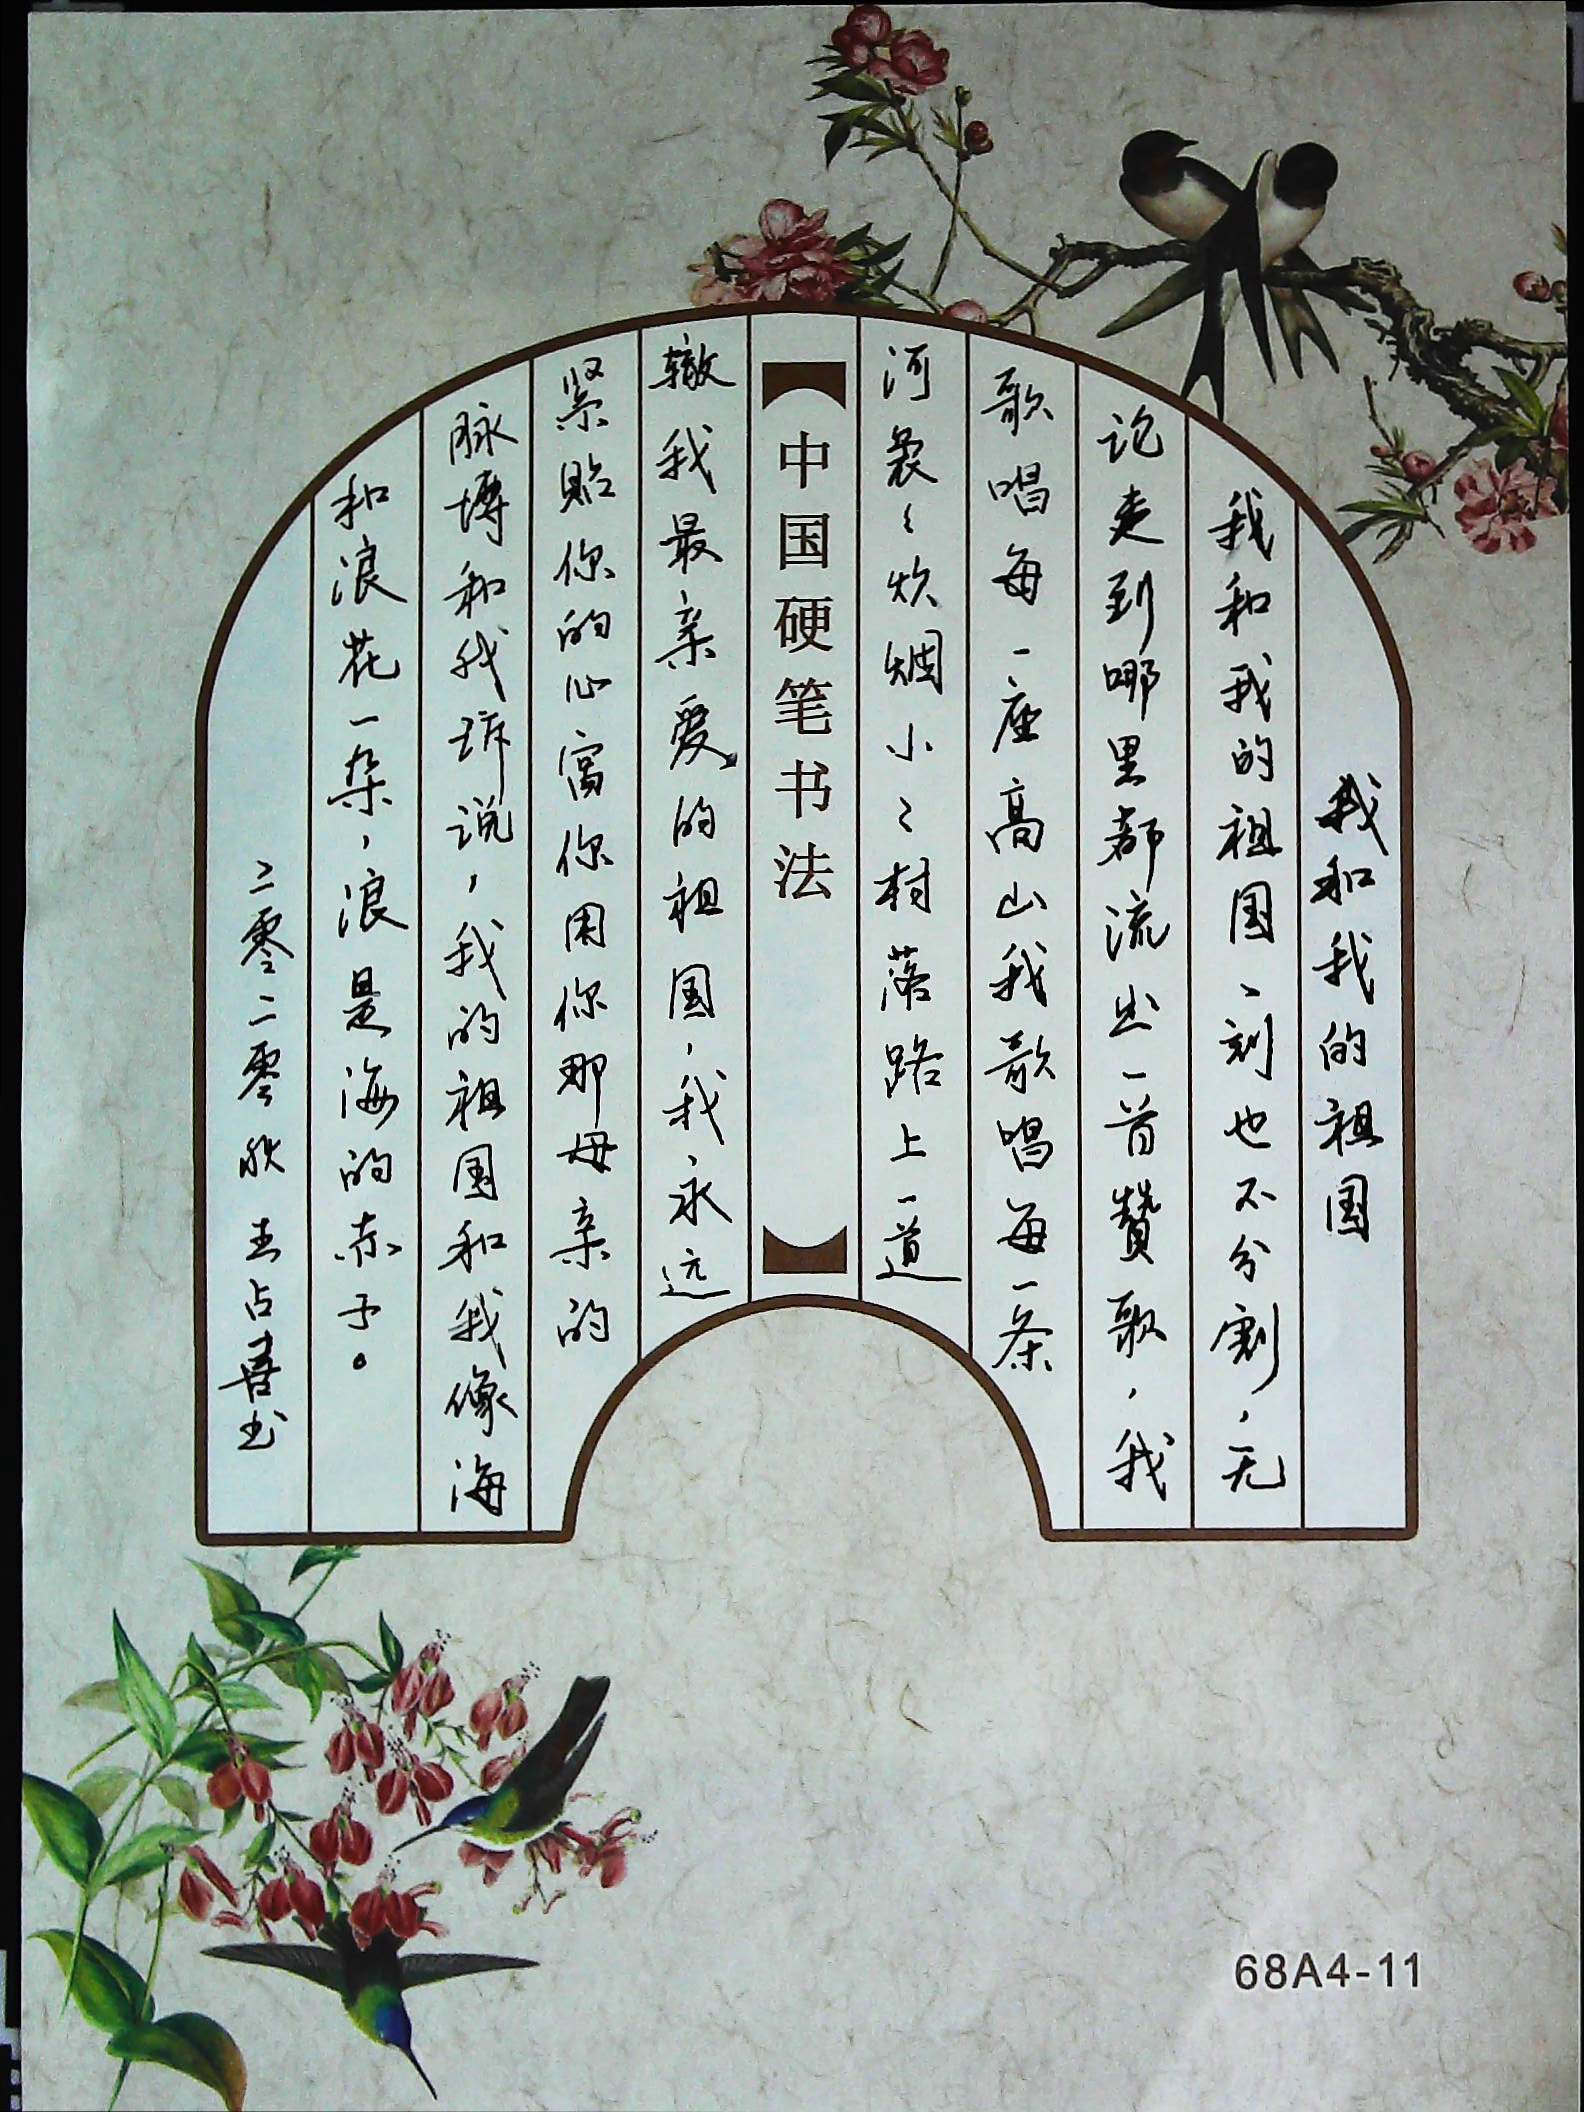 我和我的祖国
我和我的祖国、一刻也不分割,无
论走到哪里都流出一首赞歌,我
歌唱每一座高山我歌唱每一条
河袅々炊烟小々村落路上一道
中国硬笔书法
辙我最亲爱的祖国,我永远
紧贴你的心窝你用你那母亲的
脉搏和我诉说,我的祖国和我像海
和浪花一朵,浪是海的赤子。
二零二零秋 王占喜书
68A4-11